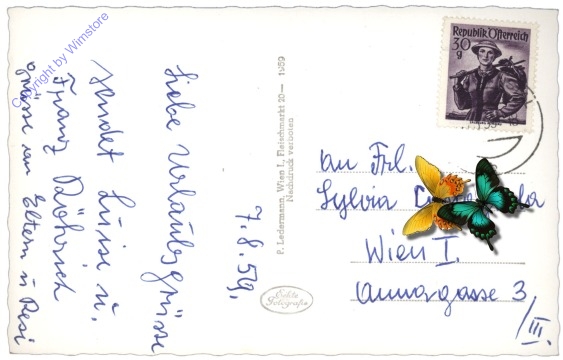 Liebe Urlaubsgrüsse
sendet Luise u.
Franz
Grüsse an Eltern u Resi
7.8.59.
P. Ledermann, Wien I., Fleischmarkt 20 — 1959
Nachdruck verboten
Echte
Fotografie
Republik Österreich
30
g
an Frl.
Sylvia
Wien I.
Annagasse 3
/III.
Copyright by Wimstore